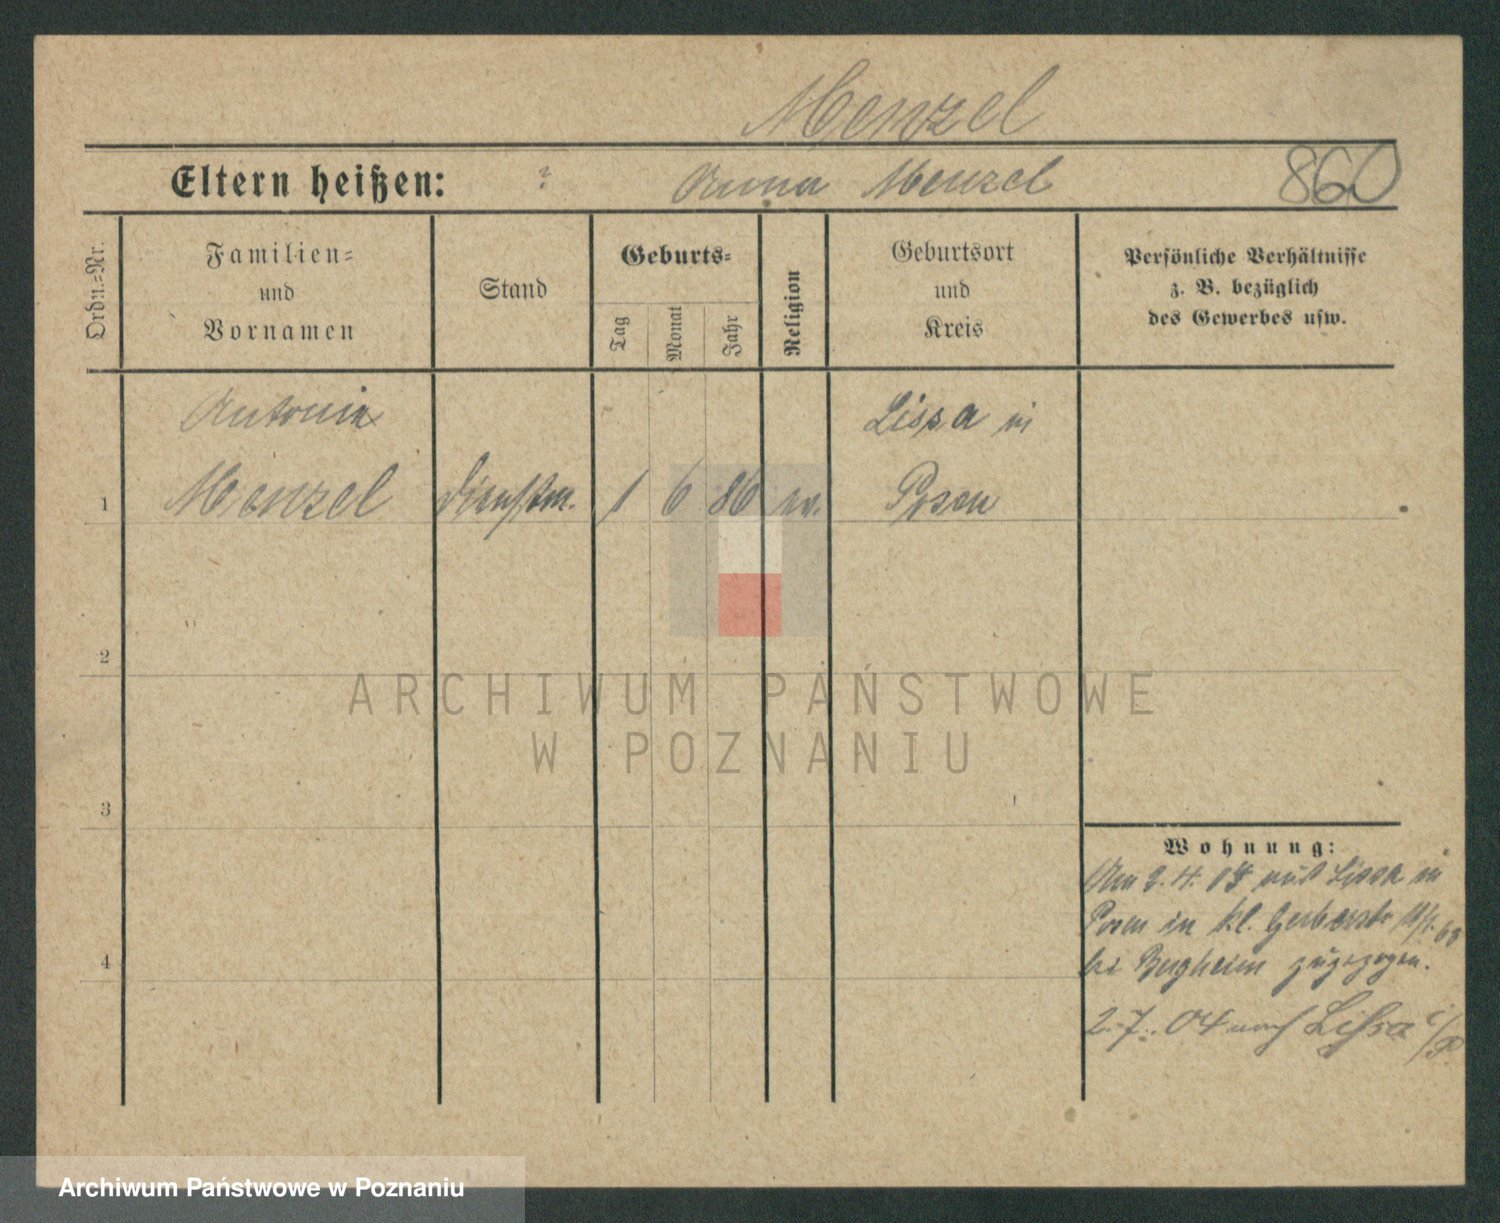 Menzel
Eltern heißen: ? Anna Menzel 860
Ordn.=Nr.
Familien=
und
Vornamen
Stand
Geburts=
Tag
Monat
Jahr
Religion
Geburtsort
und
Kreis
Persönliche Verhältnisse
z. B. bezüglich
des Gewerbes usw.
Antonie Lissa in
1 Menzel Dienstm. 1 6 86 ev. Posen
2
3
4
Wohnung:
Am 2. 4. 04 aus Lissa in
Posen in kl. Gerberstr
bei zugezogen.
2. 7. 04 nach Lissa i/P
ARCHIWUM PAŃSTWOWE
W POZNANIU
Archiwum Państwowe w Poznaniu